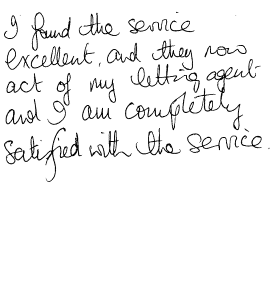 I found the service
excellent, and they now
act of my letting agent
and I am completely
satisfied with the service.